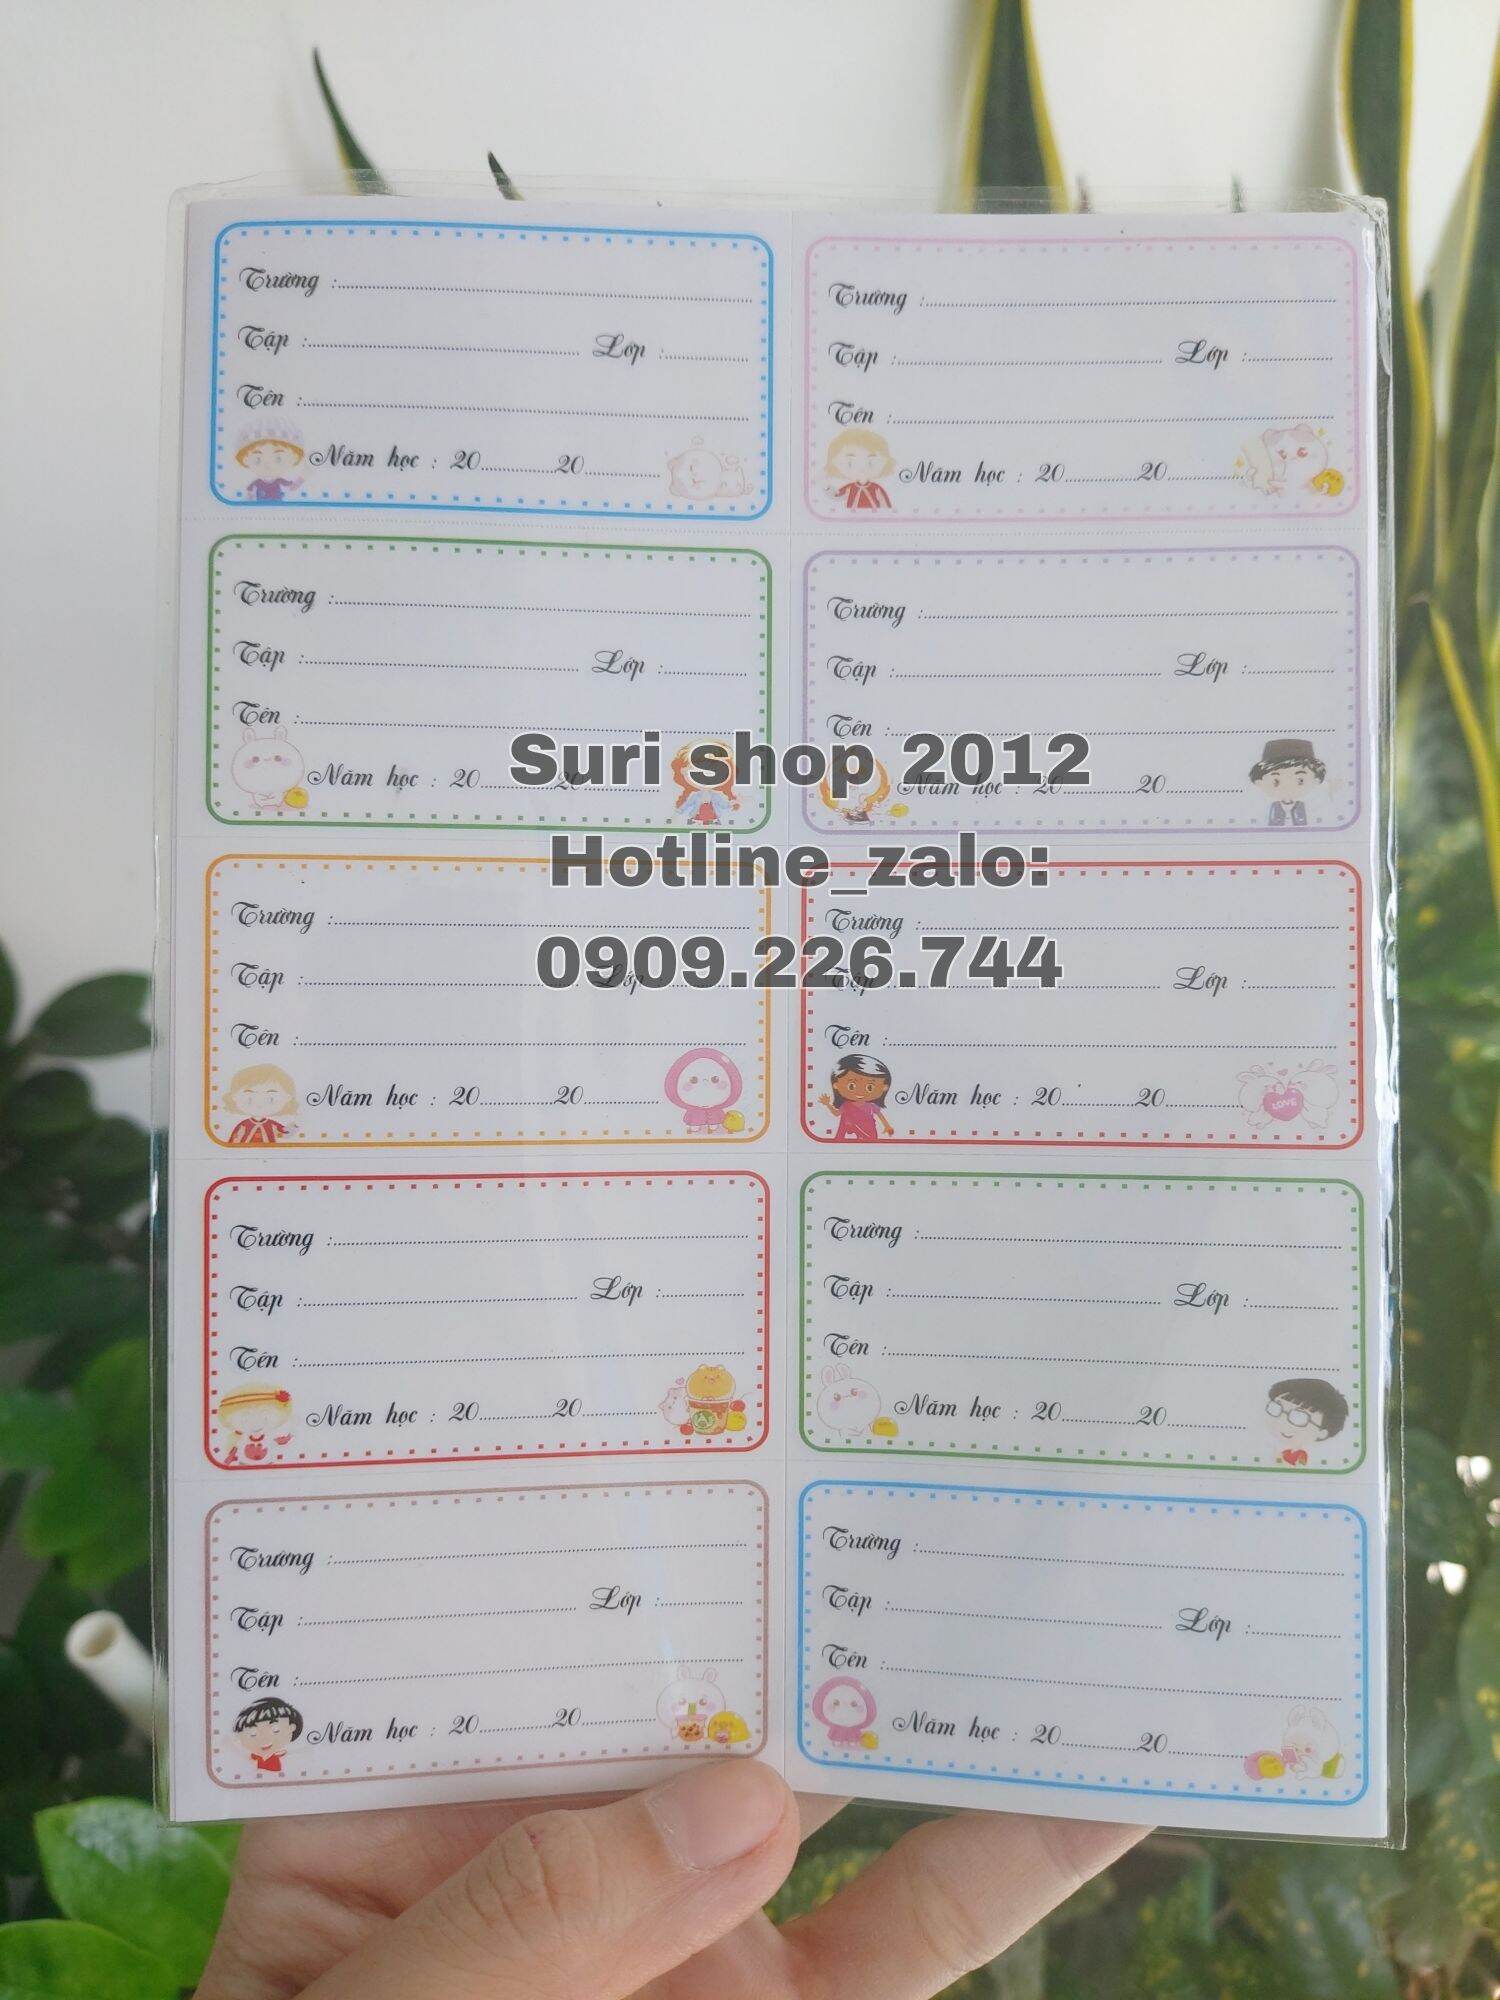 Trường :
Tập : Lớp :
Tên :
Năm học : 20 20
Trường :
Tập : Lớp :
Tên :
Năm học : 20 20
Trường :
Tập : Lớp :
Tên :
Năm học : 20 20
Trường :
Tập : Lớp :
Tên :
Năm học : 20 20
Suri shop 2012
Hotline_zalo:
0909.226.744
Trường :
Tập : Lớp :
Tên :
Năm học : 20 20
Trường :
Tập : Lớp :
Tên :
Năm học : 20 20
LOVE
Trường :
Tập : Lớp :
Tên :
Năm học : 20 20
Trường :
Tập : Lớp :
Tên :
Năm học : 20 20
Trường :
Tập : Lớp :
Tên :
Năm học : 20 20
Trường :
Tập : Lớp :
Tên :
Năm học : 20 20